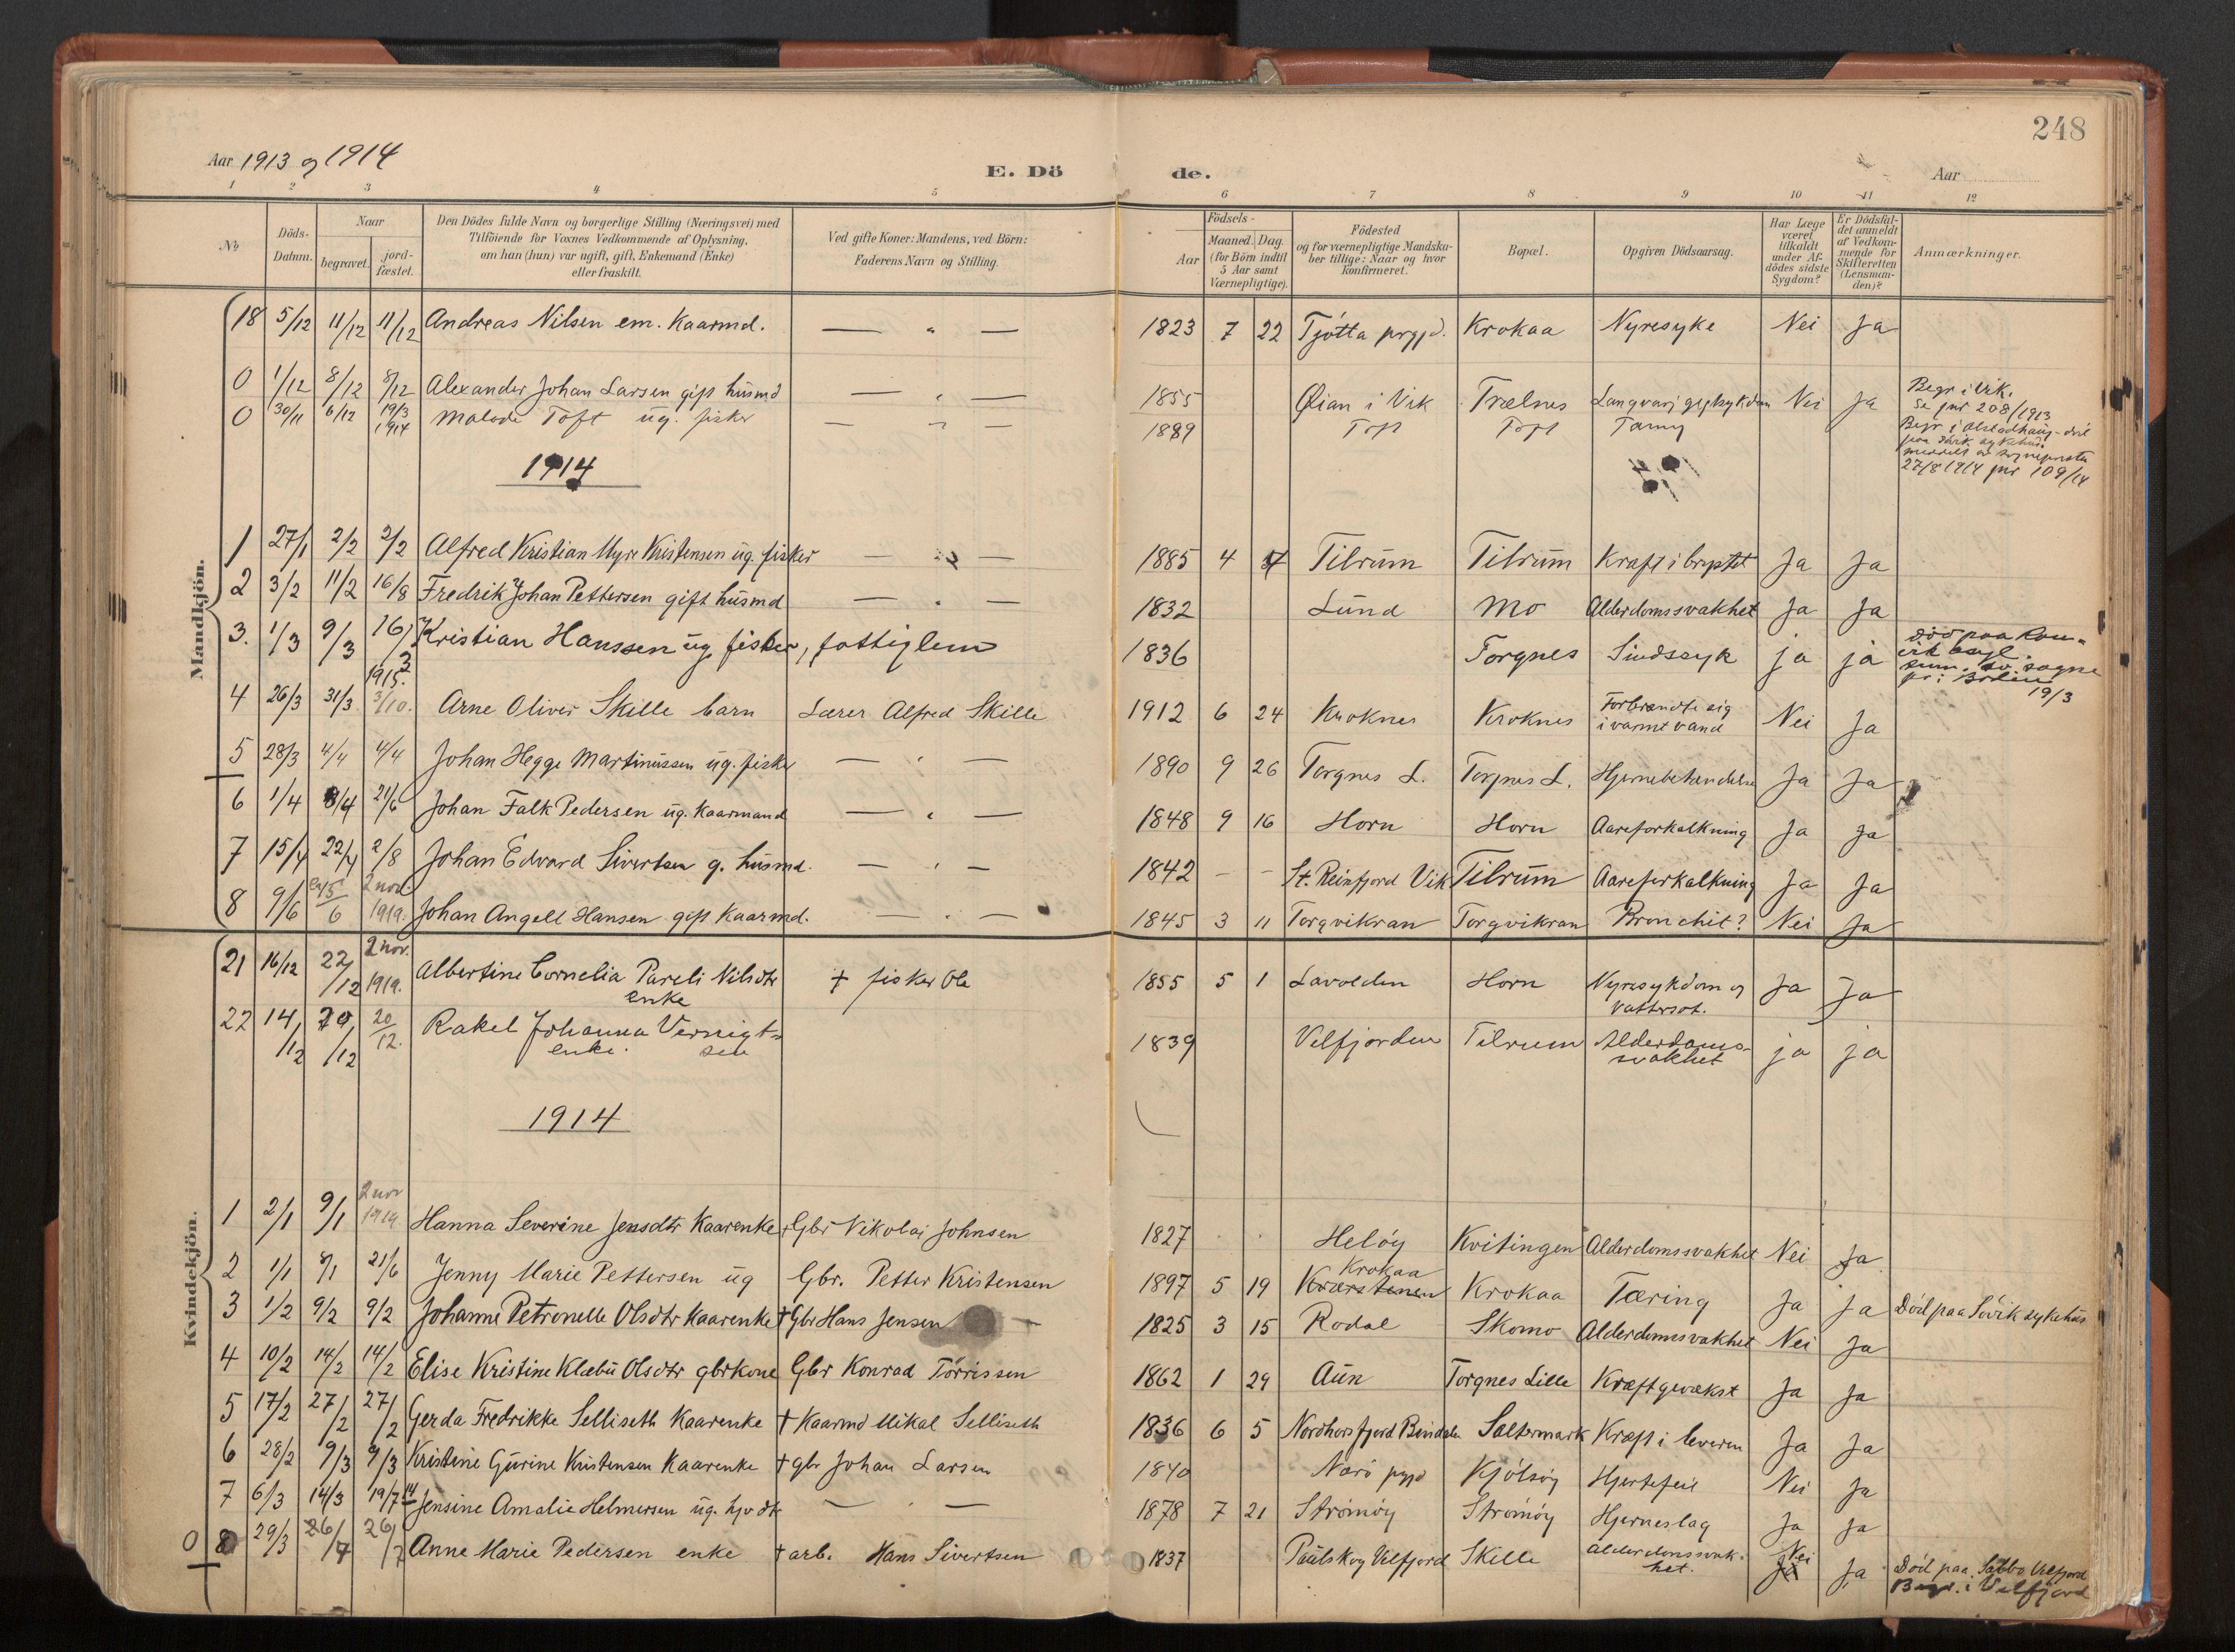 248
Aar 1913 og 1914
E. Dö de.
Aar
1 2 3 4 5 6 7 8 9 10 11 12
No
Döds-Datum.
Naar
begravet.
jordfæstet.
Den Dödes fulde Navn og borgerlige Stilling (Næringsvei) med
Tilföiende for Voxnes Vedkommende af Oplysning,
om han (hun) var ugift, gift, Enkemand (Enke)
eller fraskilt.
Ved gifte Koner: Mandens, ved Börn:
Faderens Navn og Stilling.
Födsels-
Aar
Maaned. Dag.
(for Börn indtil
5 Aar samt
Værnepligtige).
Födested
og for værnepligtige Mandska-
ber tillige: Naar og hvor
konfirmeret.
Bopæl.
Opgiven Dödsaarsag.
Har Læge
været
tilkaldt
under Af-
dödes sidste
Sygdom?
Er Dödsfal-
det anmeldt
af Vedkom-
mende for
Skifteretten
(Lensman-
den)?
Anmærkninger.
Mandkjön.
18 5/12 11/12 11/12 Andreas Nilsen em. Kaarmd. — " — 1823 7 22 Tjøtta prgjd. Krokaa Nyresyke Nei Ja
0 1/12 8/12 8/12 Alexander Johan Larsen gift husmd — " — 1855 Øian i Vik Trælnes Langvarj Nei Ja Begr i Vik.
Se jnr 208/1913
0 30/11 6/12 19/3 1914 Toft ug. fisker — " — 1889 Toft Toft Begr i Alstadhaug - død
27/8 1914 jnr 109/14
1914
1 27/1 2/2 2/2 Alfred Kristian Myre Kristensen ug. fisker — " — 1885 4 Tilrum Tilrum Kræft i brystet Ja Ja
2 3/2 11/2 16/8 Fredrik Johan Pettersen gift husmd — " — 1832 Lund Mo Alderdomssvakhet Ja Ja
3. 1/3 9/3 16/3 1915. Kristian Hanssen ug. fisker, fattiglem 1836 Torgnes Sindssyk ja ja død paa Ron-
vik asyl.
19/3
4 26/3 31/3 3/10. Arne Oliver Skille barn Lærer Alfred Skille 1912 6 24 Kroknes Kroknes Forbrændte sig
i varmt vand Nei Ja
5 28/3 4/4 4/4 Johan Hegge Martinussen ug. fisker — " — 1890 9 26 Torgnes L. Torgnes L. Hjernebetændelse Ja Ja
6 1/4 8/4 21/6 Johan Falk Pedersen ug. Kaarmand — " — 1848 9 16 Horn Horn Aareforkalkning Ja Ja
7 15/4 22/4 2/8 Johan Edvard Sivertsen g. husmd. — " — 1842 - - St. Reinfjord Vik Tilrum Aareforkalkning Ja Ja
8 9/6 15/6 2 nov 1919. Johan Angell Hansen gift Kaarmd. — " — 1845 3 11 Torgvikran Torgvikran Bronchit? Nei Ja
Kvindekjön.
21 16/12 22/12 2 nov. 1919. Albertine Cornelia Pareli Nilsdtr
enke † fisker Ole 1855 5 1 Lavolden Horn Nyresykdom og
Vattersot. Ja Ja
22 14/12 20/12. Rakel Johanna Vernigt-
sen enke. 1839 Velfjorden Tilrum Alderdoms-
svakhet ja ja
1914
1 2/1 9/1 2 nov 1919 Hanna Severine Jensdtr Kaarenke † Gbr Nikolai Johnsen 1827 Heløy Kvitingen Alderdomssvakhet Nei Ja
2 1/1 8/1 21/6 Jenny Marie Pettersen ug Gbr. Petter Kristensen 1897 5 19 Krokaa Krokaa Tæring Ja Ja Død paa Søvik sykehus
3 1/2 9/2 9/2 Johanne Petronelle Olsdtr Kaarenke † Gbr Hans Jensen — 1825 3 15 Rodal Skomo Alderdomssvakhet Nei Ja
4 10/2 14/2 14/2 Elise Kristine Klæbu Olsdtr gbrkone Gbr Konrad Tørrissen 1862 1 29 Aun Torgnes Lille Kræftgevækst Ja Ja
5 17/2 27/2 27/2 Gerda Fredrikke Selliseth Kaarenke † Kaarmd Mikal Selliseth 1836 6 5 Nordhorsfjord Bindalen Saltermark Kræft i leveren Ja Ja
6 28/2 9/3 9/3 Kristine Gurine Kristensen Kaarenke † gbr Johan Larsen 1840 Nærø pgjd Kjølsøy Hjertefeil Nei Ja
7 6/3 14/3 19/7 14 Jensine Amalie Helmersen ug. — " — 1878 7 21 Strømøy Strømøy Hjerneslag Ja Ja
0 8 29/3 26/7 26/7 Anne Marie Pedersen enke † arb. Hans Sivertsen 1837 Paulskog Velfjord Skille Alderdomssvak-
het. Nei Ja Død paa Velfjord
Begr. i Velfjord